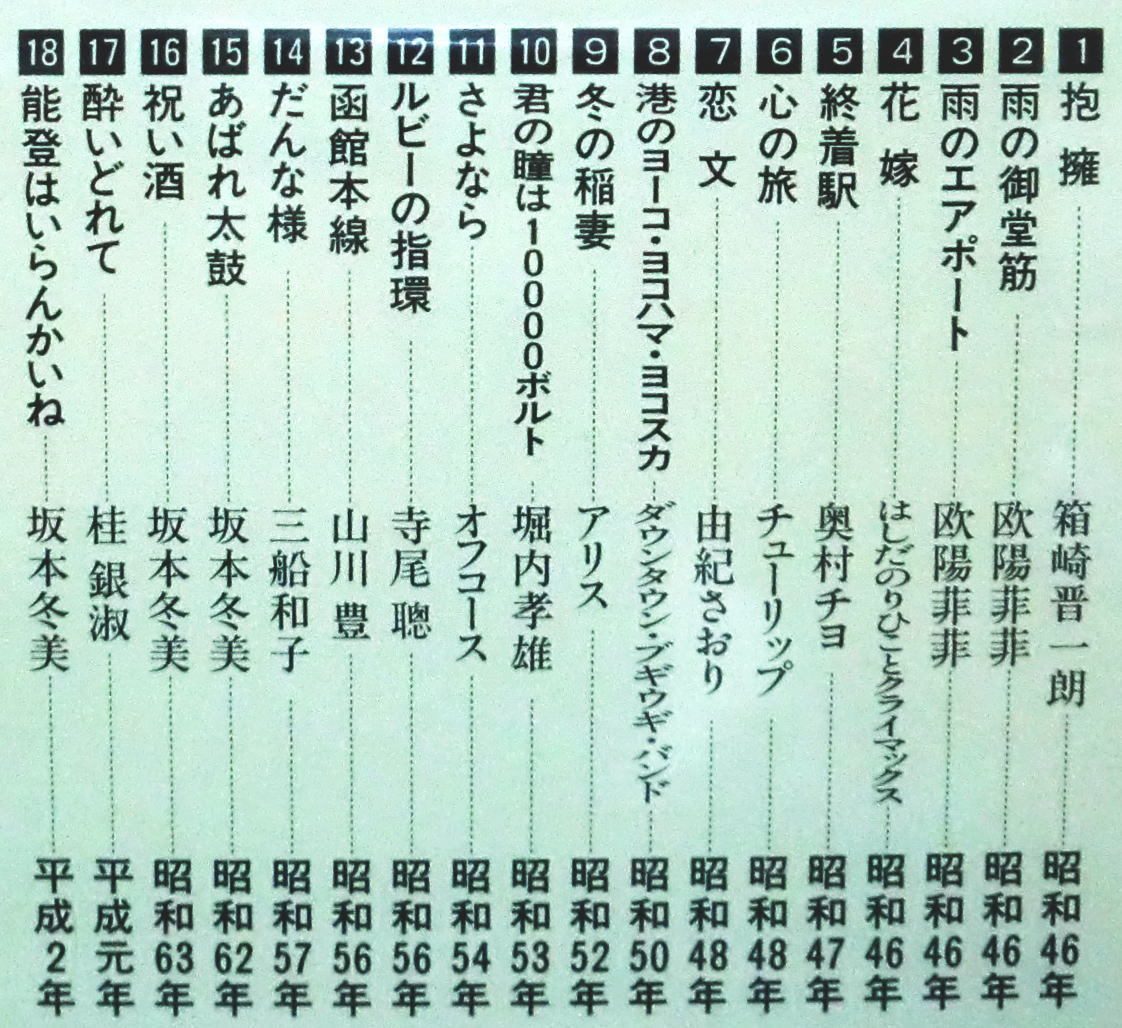 1 抱擁 箱崎晋一朗 昭和46年
2 雨の御堂筋 欧陽菲菲 昭和46年
3 雨のエアポート 欧陽菲菲 昭和46年
4 花嫁 はしだのりひことクライマックス 昭和46年
5 終着駅 奥村チヨ 昭和47年
6 心の旅 チューリップ 昭和48年
7 恋文 由紀さおり 昭和48年
8 港のヨーコ・ヨコハマ・ヨコスカ ダウンタウン・ブギウギ・バンド 昭和50年
9 冬の稲妻 アリス 昭和52年
10 君の瞳は10000ボルト 堀内孝雄 昭和53年
11 さよなら オフコース 昭和54年
12 ルビーの指環 寺尾聰 昭和56年
13 函館本線 山川豊 昭和56年
14 だんな様 三船和子 昭和57年
15 あばれ太鼓 坂本冬美 昭和62年
16 祝い酒 坂本冬美 昭和63年
17 酔いどれて 桂銀淑 平成元年
18 能登はいらんかいね 坂本冬美 平成2年